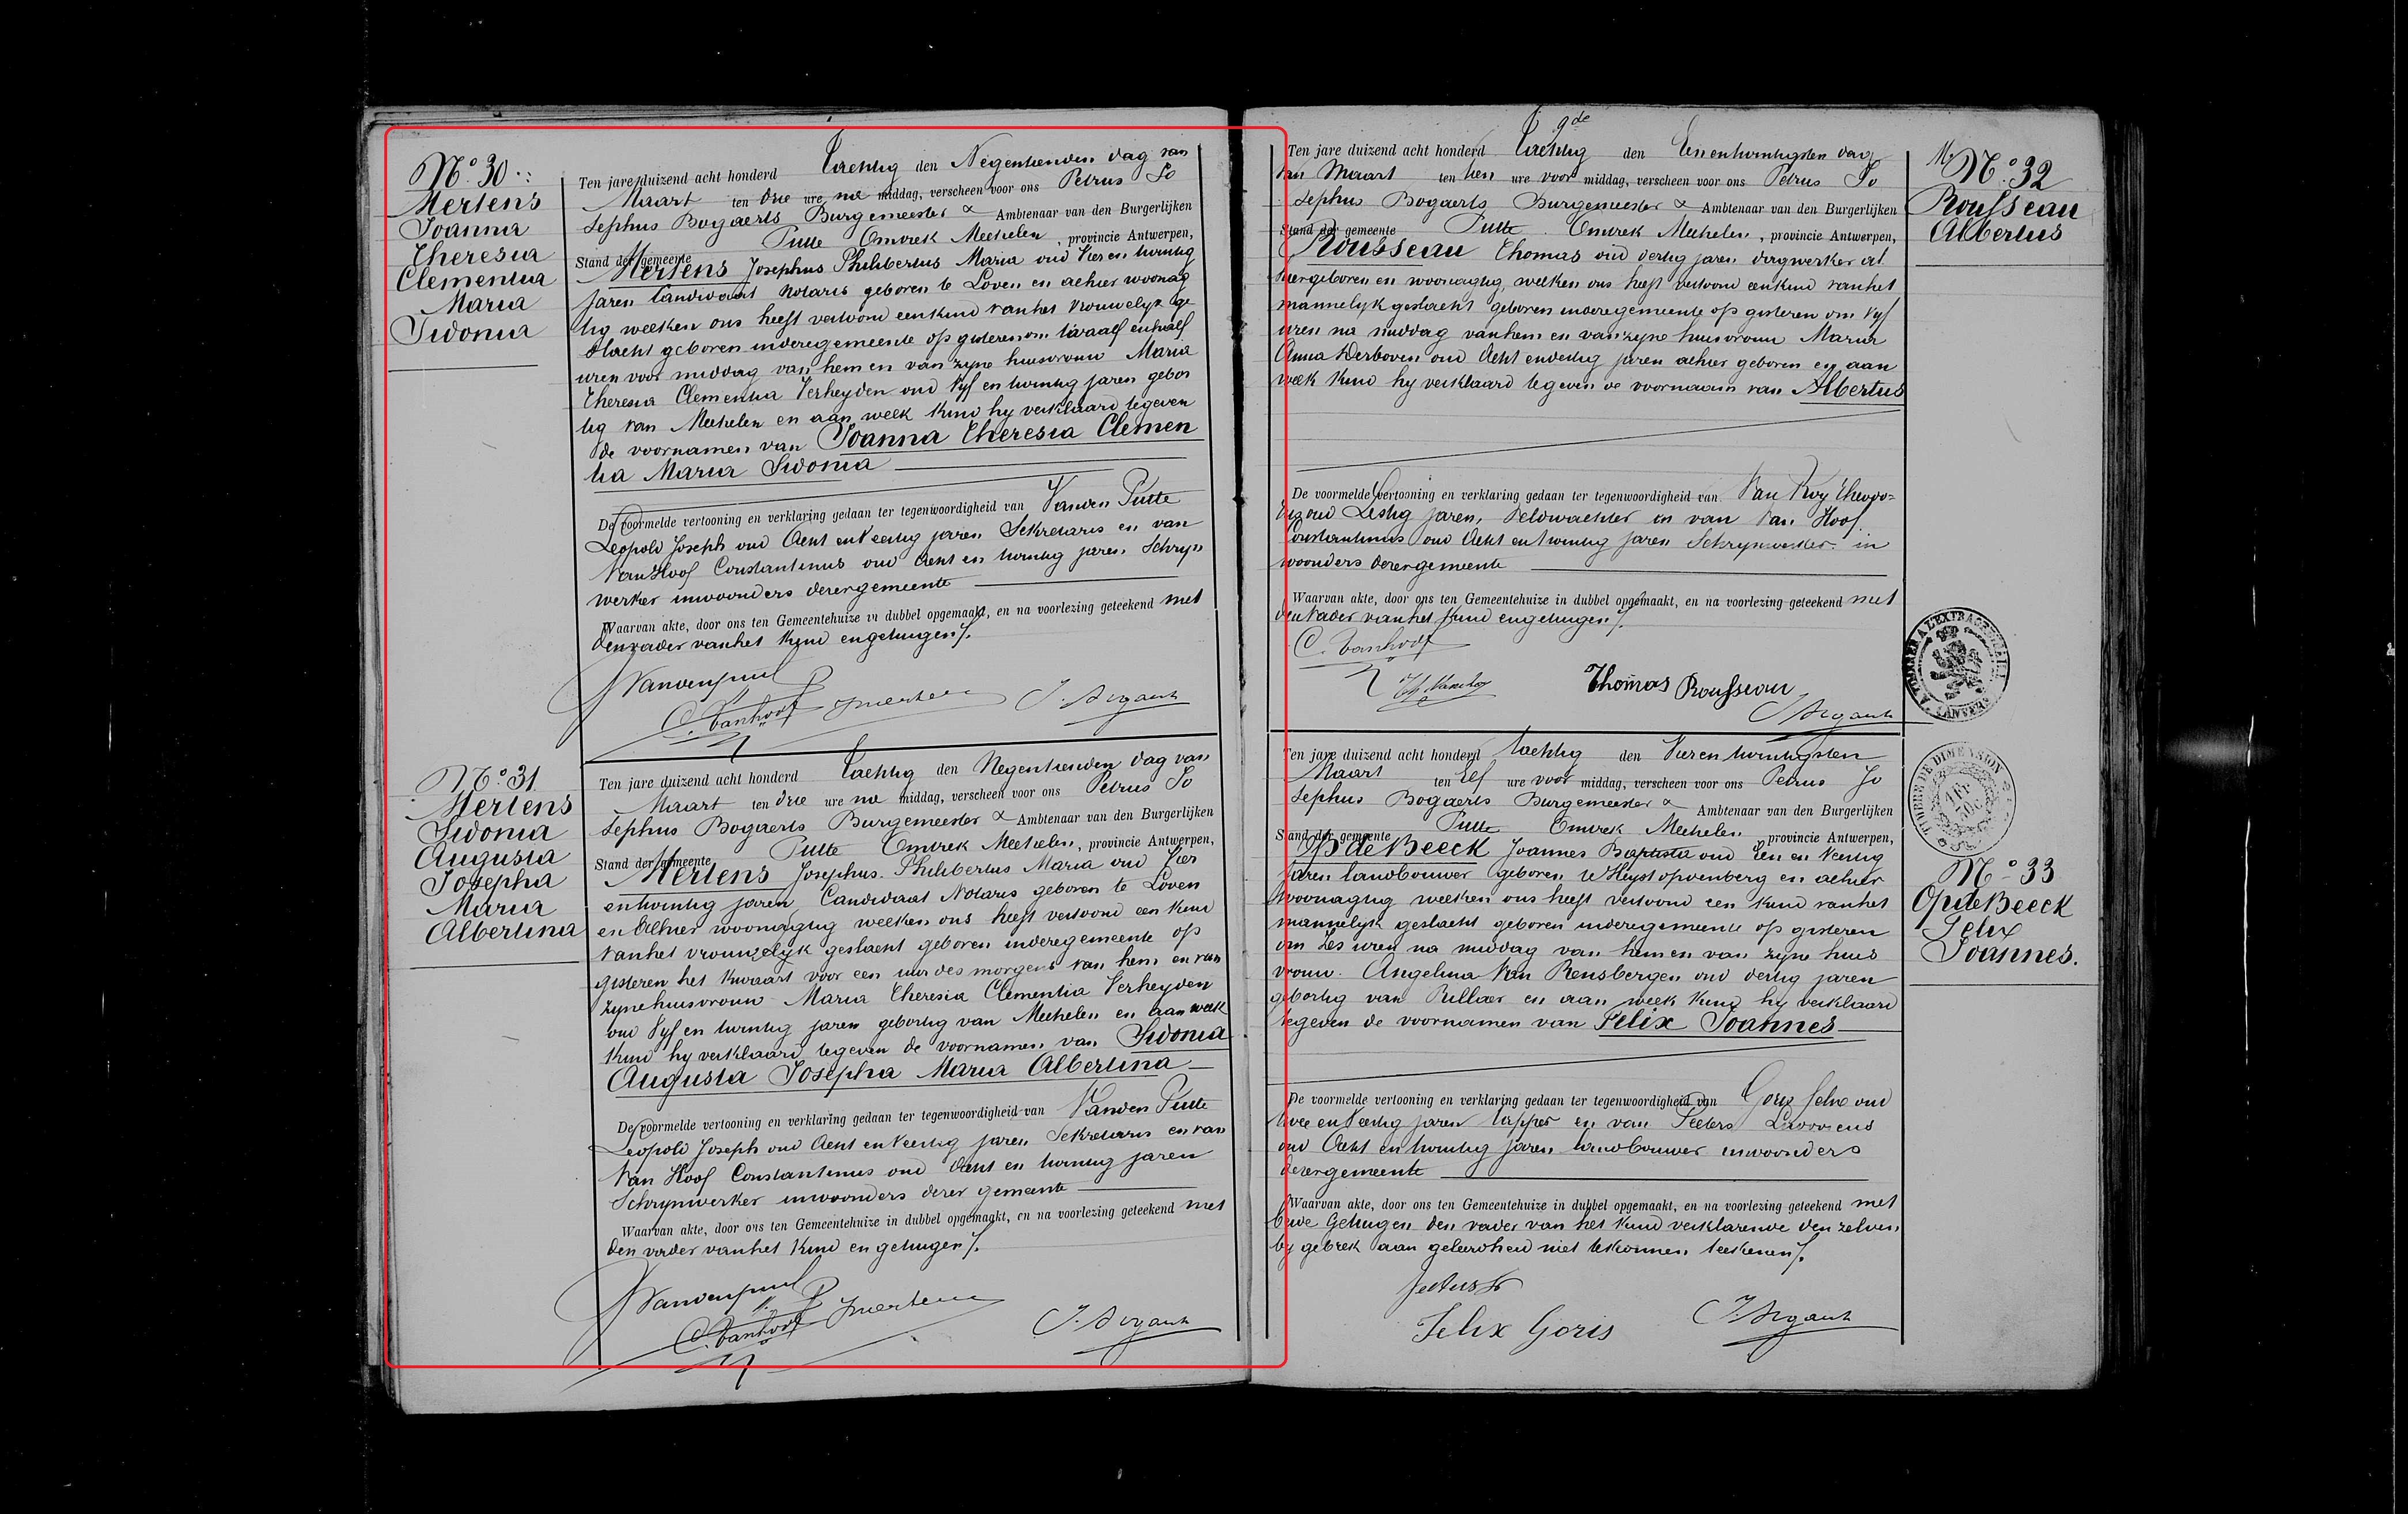 N° 30
Mertens
Joanna
Theresia
Clementia
Maria
Sidonia
Ten jare duizend acht honderd tachtig den Negentienden dag van
Maart ten drie ure na middag, verscheen voor ons Petrus Jo
sephus Bogaerts Burgemeester & Ambtenaar van den Burgerlijken
Stand der gemeente Putte Omtrek Mechelen, provincie Antwerpen,
Mertens Josephus Philibertus Maria oud Vier en twintig
jaren Candidaat Notaris geboren te Loven en alhier woonag
tig welken ons heeft vertoond een kind van het vrouwelyk ge
slacht geboren in deze gemeente op gisteren om twaalf en half
uren voor middag van hem en van zyne huisvrouw Maria
Theresia Clementia Verheyden oud Vyf en twintig jaren gebor
tig van Mechelen en aan welk kind hy verklaard te geven
de voornamen van Joanna Theresia Clemen
tia Maria Sidonia
De voormelde vertooning en verklaring gedaan ter tegenwoordigheid van Vanden Putte
Leopold Joseph oud Acht en Veertig jaren Sekretaris en van
Van Hoof Constantinus oud Acht en twintig jaren Schryn
werker inwoonders dezer gemeente
Waarvan akte, door ons ten Gemeentehuize in dubbel opgemaakt, en na voorlezing geteekend met
den vader van het kind en getuigen /.
C. Vanhoof JMertens
N° 31
Mertens
Sidonia
Augusta
Josepha
Maria
Albertina
Ten jare duizend acht honderd tachtig den Negentienden dag van
Maart ten drie ure na middag, verscheen voor ons Petrus Jo
sephus Bogaerts Burgemeester & Ambtenaar van den Burgerlijken
Stand der gemeente Putte Omtrek Mechelen, provincie Antwerpen,
Mertens Josephus Philibertus Maria oud Vier
en twintig jaren Candidaat Notaris geboren te Loven
en Alhier woonagtig welken ons heeft vertoond een kind
van het vrouwelyk geslacht geboren in deze gemeente op
gisteren het kwaart voor een uur des morgens van hem en van
zyne huisvrouw Maria Theresia Clementia Verheyden
oud Vyf en twintig jaren gebortig van Mechelen en aan welk
kind hy verklaard te geven de voornamen van Sidonia
Augusta Josepha Maria Albertina
De voormelde vertooning en verklaring gedaan ter tegenwoordigheid van Vanden Putte
Leopold Joseph oud Acht en Veertig jaren Sekretaris en van
Van Hoof Constantinus oud Acht en twintig jaren
Schrynwerker inwoonders dezer gemeente
Waarvan akte, door ons ten Gemeentehuize in dubbel opgemaakt, en na voorlezing geteekend met
den vader van het kind en getuigen /.
C. Vanhoof JMertens
9de
Ten jare duizend acht honderd tachtig den Eenentwintigsten dag
van Maart ten tien ure voor middag, verscheen voor ons Petrus Jo
sephus Bogaerts Burgemeester & Ambtenaar van den Burgerlijken
Stand der gemeente Putte Omtrek Mechelen, provincie Antwerpen,
Rousseau Thomas oud dertig jaren dagwerker al
hier geboren en woonagtig, welken ons heeft vertoond een kind van het
mannelyk geslacht geboren in deze gemeente op gisteren om Vyf
uren na middag van hem en van zyne huisvrouw Maria
Anna Derboven oud Acht en dertig jaren alhier geboren en aan
welk kind hy verklaard te geven de voornaam van Albertus
De voormelde vertooning en verklaring gedaan ter tegenwoordigheid van Van Roy Theodo=
oud Zestig jaren, Veldwachter en van Van Hoof
Constantinus oud Acht en twintig jaren Schrynwerker in
woonders dezer gemeente
Waarvan akte, door ons ten Gemeentehuize in dubbel opgemaakt, en na voorlezing geteekend met
den Vader van het kind en getuigen /.
C. Vanhoof
Thomas Rousseau
N° 32
Rousseau
Albertus
TIMBRE DE DIMENSION
Ten jare duizend acht honderd tachtig den Vierentwintigsten
Maart ten Elf ure voor middag, verscheen voor ons Petrus Jo
sephus Bogaerts Burgemeester & Ambtenaar van den Burgerlijken
Stand der gemeente Putte Omtrek Mechelen provincie Antwerpen,
Op de Beeck Joannes Baptista oud Een en Veertig
jaren landbouwer geboren te Heyst op den berg en alhier
woonagtig welken ons heeft vertoond een kind van het
mannelyk geslacht geboren in deze gemeente op gisteren
om Zes uren na middag van hem en van zyne huis
vrouw Angelina Van Rensbergen oud dertig jaren
gebortig van Rillaer en aan welk kind hy verklaard
te geven de voornamen van Felix Joannes
De voormelde vertooning en verklaring gedaan ter tegenwoordigheid van Goris Felix oud
twee en Veertig jaren tapper en van Peeters Ludovicus
oud Acht en twintig jaren landbouwer inwoonders
dezer gemeente
Waarvan akte, door ons ten Gemeentehuize in dubbel opgemaakt, en na voorlezing geteekend met
beide Getuigen den vader van het kind verklarende den zelven
by gebrek aan geleerdheid niet te konnen teekenen /.
Felix Goris
N° 33
Op de Beeck
Felix
Joannes.